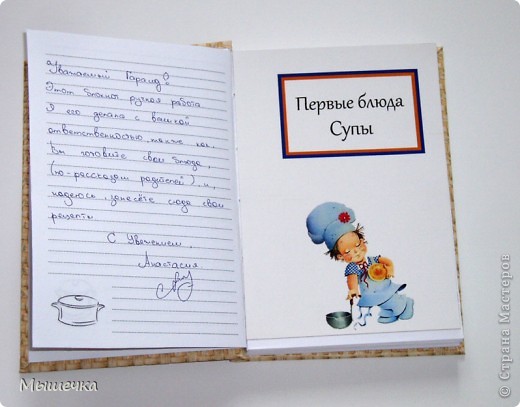 Уважаемый Гаранд!
Этот блокнот ручная работа
Я его делала с великой
ответственностью, также как,
Вы готовите свои блюда,
(по-рассказам родителей) и,
надеюсь, занесёте сюда свои
рецепты
С Уважением,
Анастасия
Первые блюда
Супы
Мышечка
© Страна Мастеров